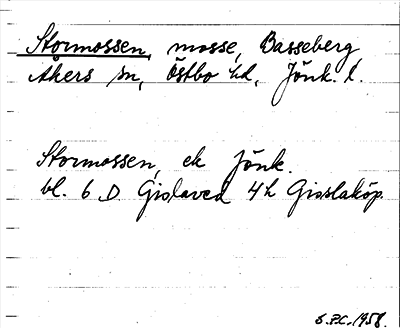 Stormossen, mosse, Basseberg
Åkers sn, Östbo hd, Jönk. l.
Stormossen, ek Jönk.
bl. 6 D Gislaved 4h Gisslaköp.
S.P.C. 1958.